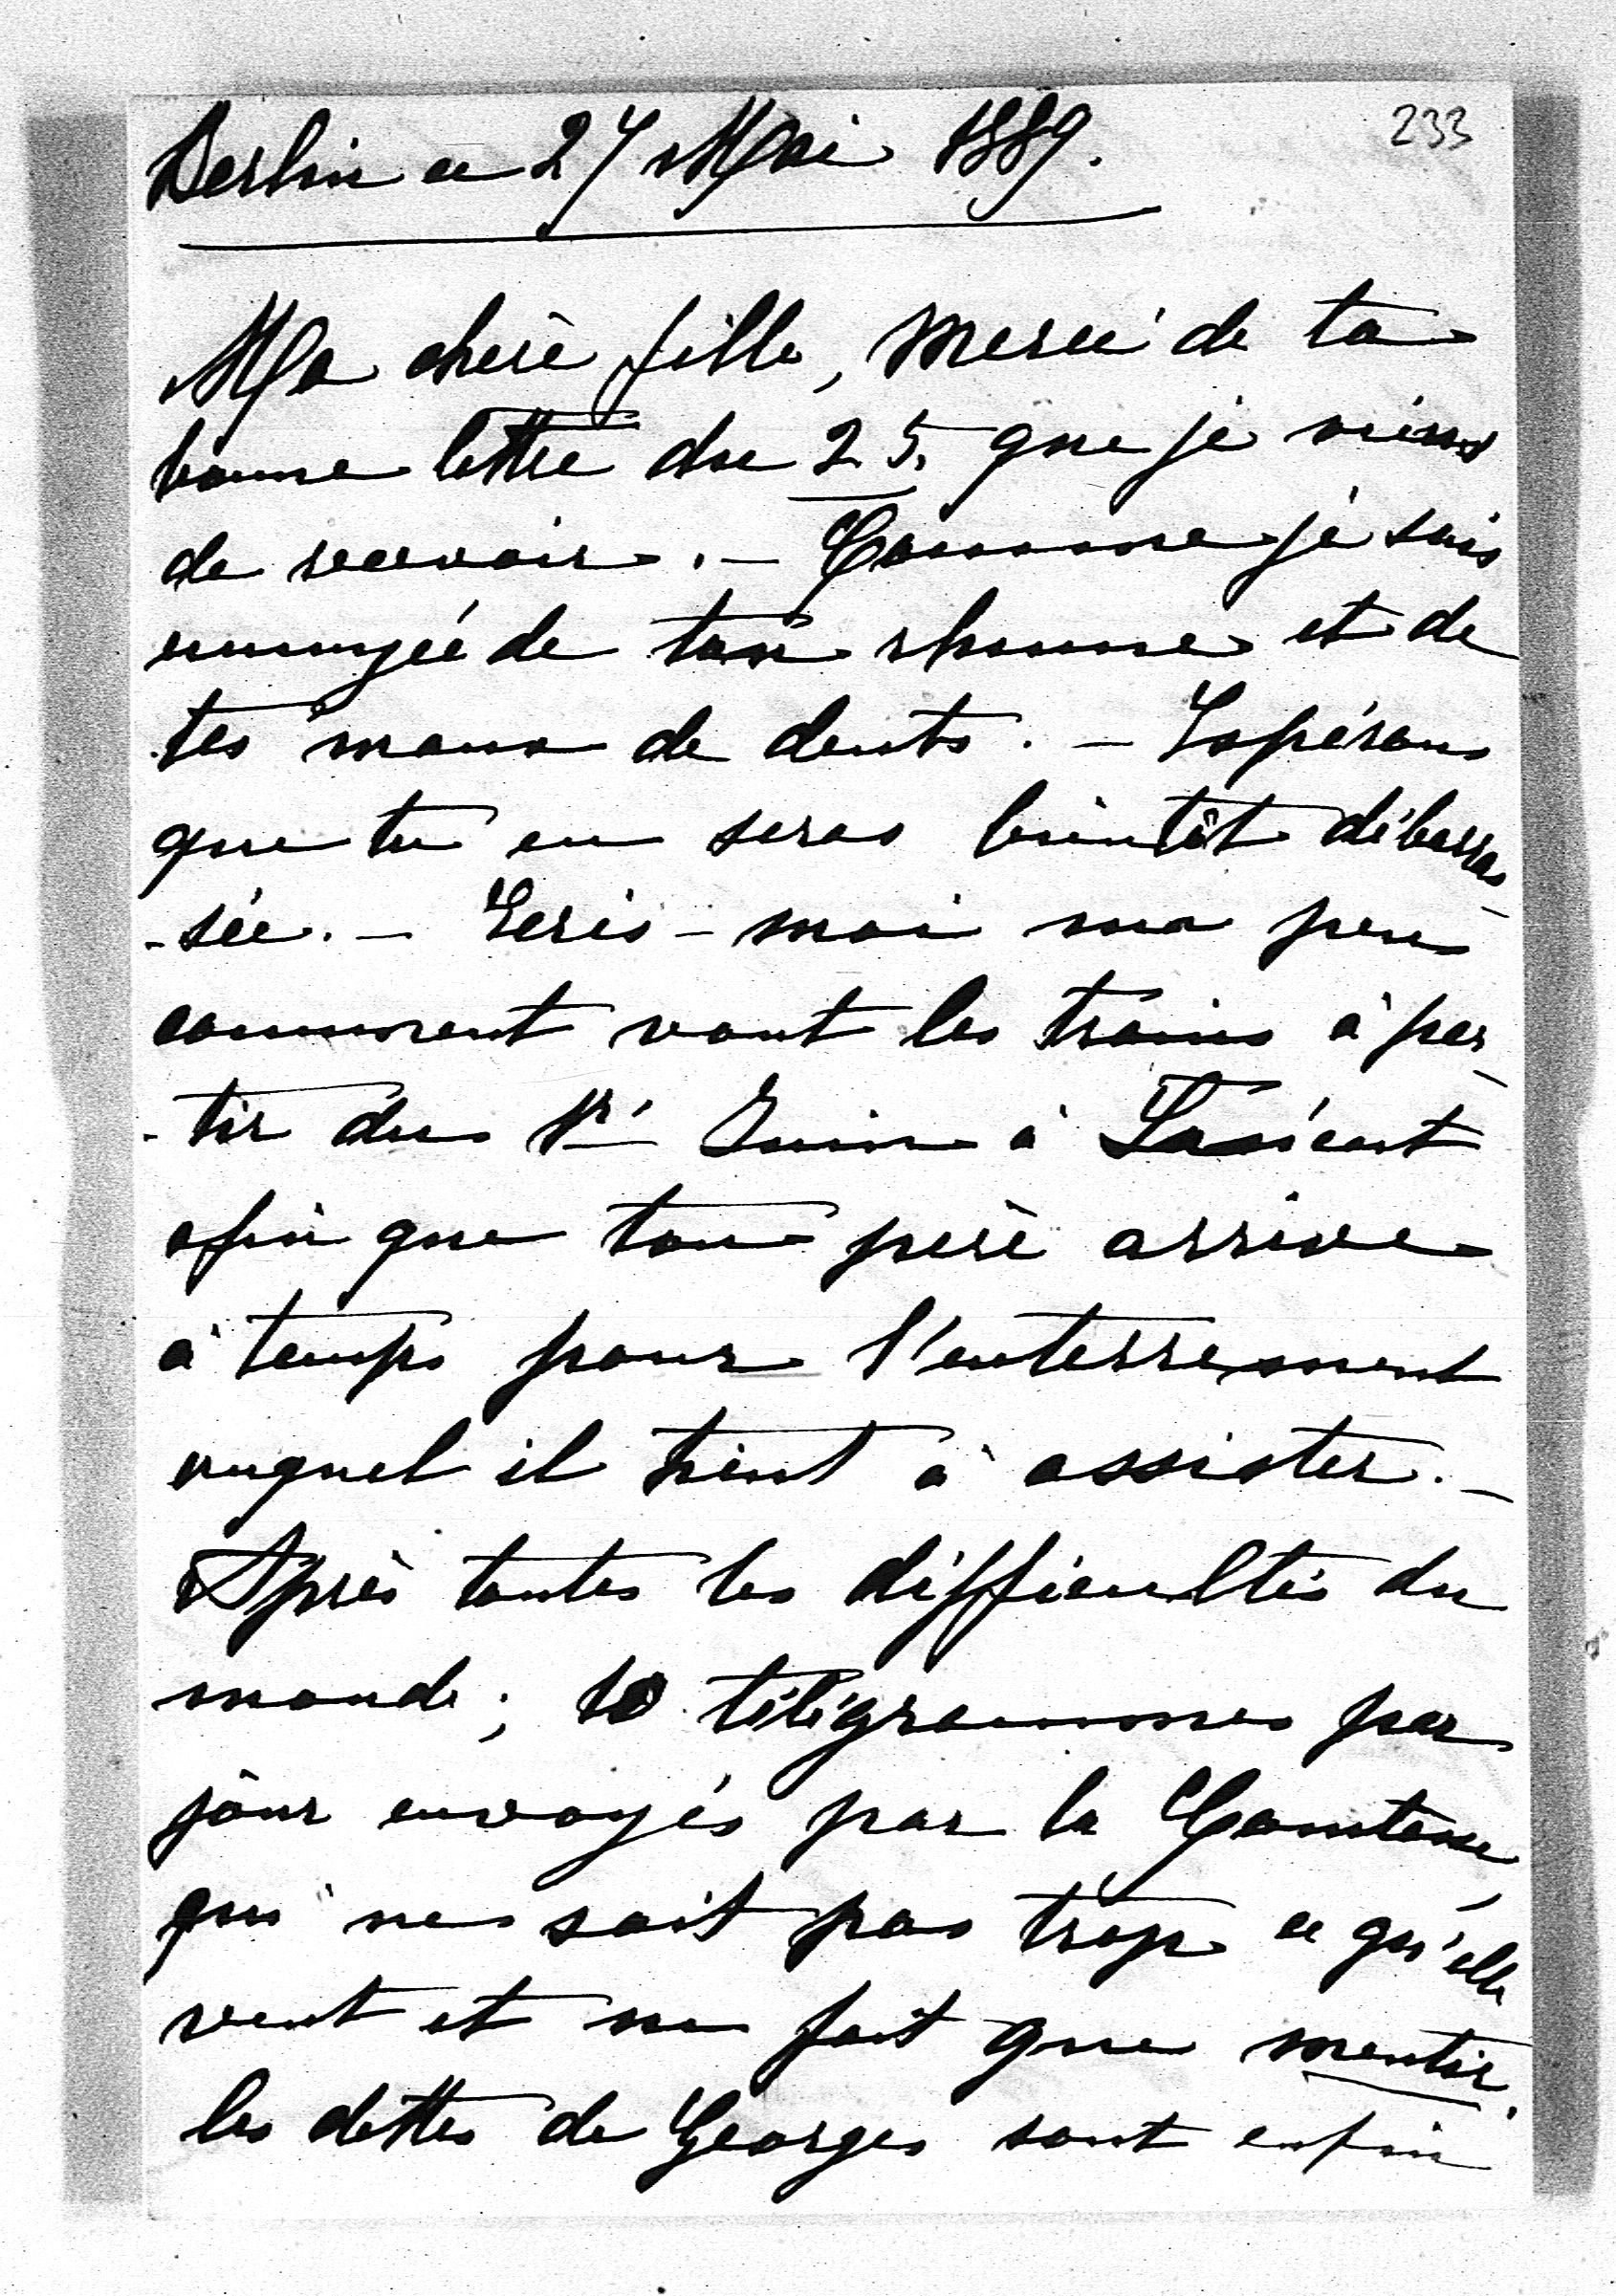 233
Berlin ce 27 Mai 1889.
Ma chère fille, merci de ta
bonne lettre du 25. que je viens
de recevoir. – Comme je suis
ennuyée de ton rhume et de
tes maux de dents. – Espérons
que tu en seras bientôt débarras-
-sée. – Ecris-moi un peu
comment vont les trains à par-
-tir du 1r Juin à Łańcut
afin que ton père arrive
à temps pour l'enterrement
auquel il tient à assister. –
Après toutes les difficultés du
monde; 10 télégrammes par
jour envoyés par la Comtesse
qui ne sait pas trop ce qu'elle
veut et ne fait que mentir,
les dettes de Georges sont enfin